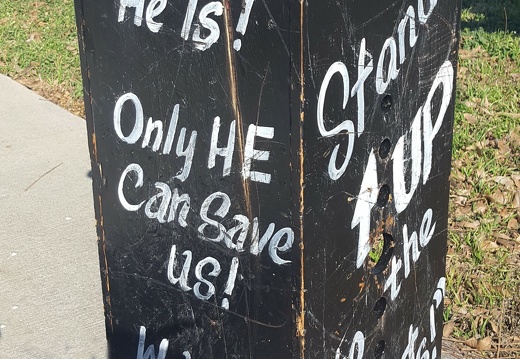 He Is!
Only HE
Can Save
us!
Stand
UP
the